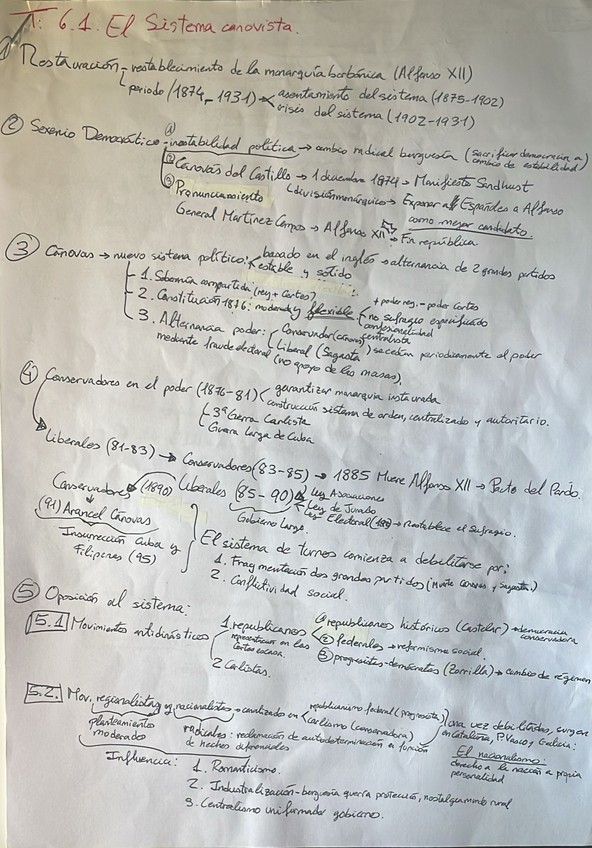 T: 6.1. El Sistema canovista.
① Restauración - restablecimiento de la monarquía borbónica (Alfonso XII)
periodo (1874 - 1931) asentamiento del sistema (1875-1902)
crisis del sistema (1902-1931)
② Sexenio Democrático - ① inestabilidad política → cambio radical burguesía (sacrificar democracia a cambio de estabilidad)
② Cánovas del Castillo → 1 diciembre 1874 → Manifiesto Sandhurst
↳ división monárquicos → Exponer a Españoles a Alfonso como mejor candidato.
③ Pronunciamiento
General Martínez Campos → Alfonso XII → Fin república
③ Cánovas → nuevo sistema político: basado en el inglés → alternancia de 2 grandes partidos
estable y sólido
1. Soberanía compartida (rey + Cortes)
2. Constitución 1876: moderada y flexible + poder rey - poder Cortes
no sufragio especificado
confesionalidad
centralista
3. Alternancia poder: Conservador (Cánovas)
Liberal (Sagasta) sucedían periodicamente al poder
mediante fraude electoral (no apoyo de las masas).
④ Conservadores en el poder (1876-81) garantizar monarquía instaurada
construcción sistema de orden, centralizado y autoritario.
3ª Guerra Carlista
Guerra Larga de Cuba
Liberales (81-83) → Conservadores (83-85) → 1885 Muere Alfonso XII → Pacto del Pardo.
Conservadores (1890) Liberales (85-90) Ley Asociaciones
Ley de Jurado
Ley Electoral → Restablece el Sufragio.
Gobierno Largo.
(91) Arancel Cánovas
Insurrección Cuba y Filipinas (95)
El sistema de turnos comienza a debilitarse por:
1. Fragmentación dos grandes partidos (Muerte Cánovas y Sagasta)
2. Conflictividad social.
⑤ Oposición al sistema:
5.1 Movimientos antidinásticos 1. republicanos
① republicanos históricos (Castelar) → democracia conservadora
② federales → reformismo social.
③ progresistas-demócratas (Zorrilla) → cambio de régimen
2 Carlistas.
5.2. Mov. regionalistas y nacionalistas → canalizado en republicanismo federal (progresista)
carlismo (conservadora)
una vez debilitados, surgen en Cataluña, P. Vasco, Galicia:
planteamiento moderado
radicales: reclamación de autodeterminación en función de hechos diferenciales
El nacionalismo:
derecho a la nación a propia personalidad
Influencia: 1. Romanticismo.
2. Industralización - burguesía quería protección, nostalgia mundo rural
3. Centralismo uniformador gobierno.